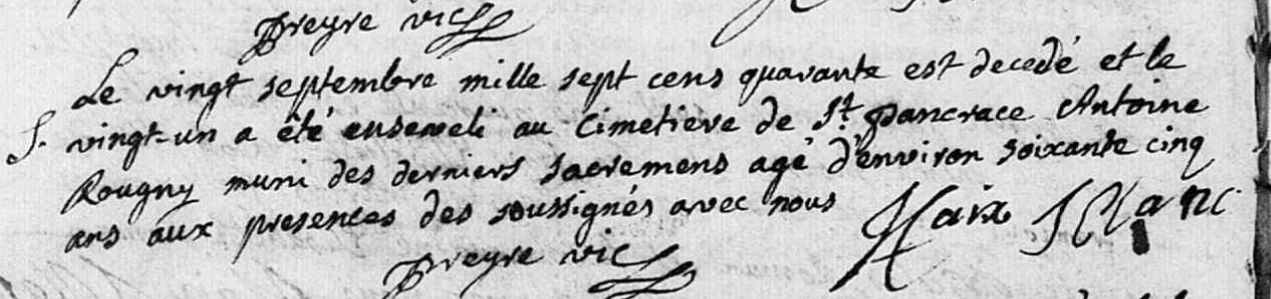 preyre vic
Le vingt septembre mille sept cens quarante est decedé et le
S. vingt-un a été enseveli au Cimetiere de St. Pancrace Antoine
Rougny muni des derniers sacremens agé d'environ soixante cinq
ans aux presences des soussignés avec nous
preyre vic